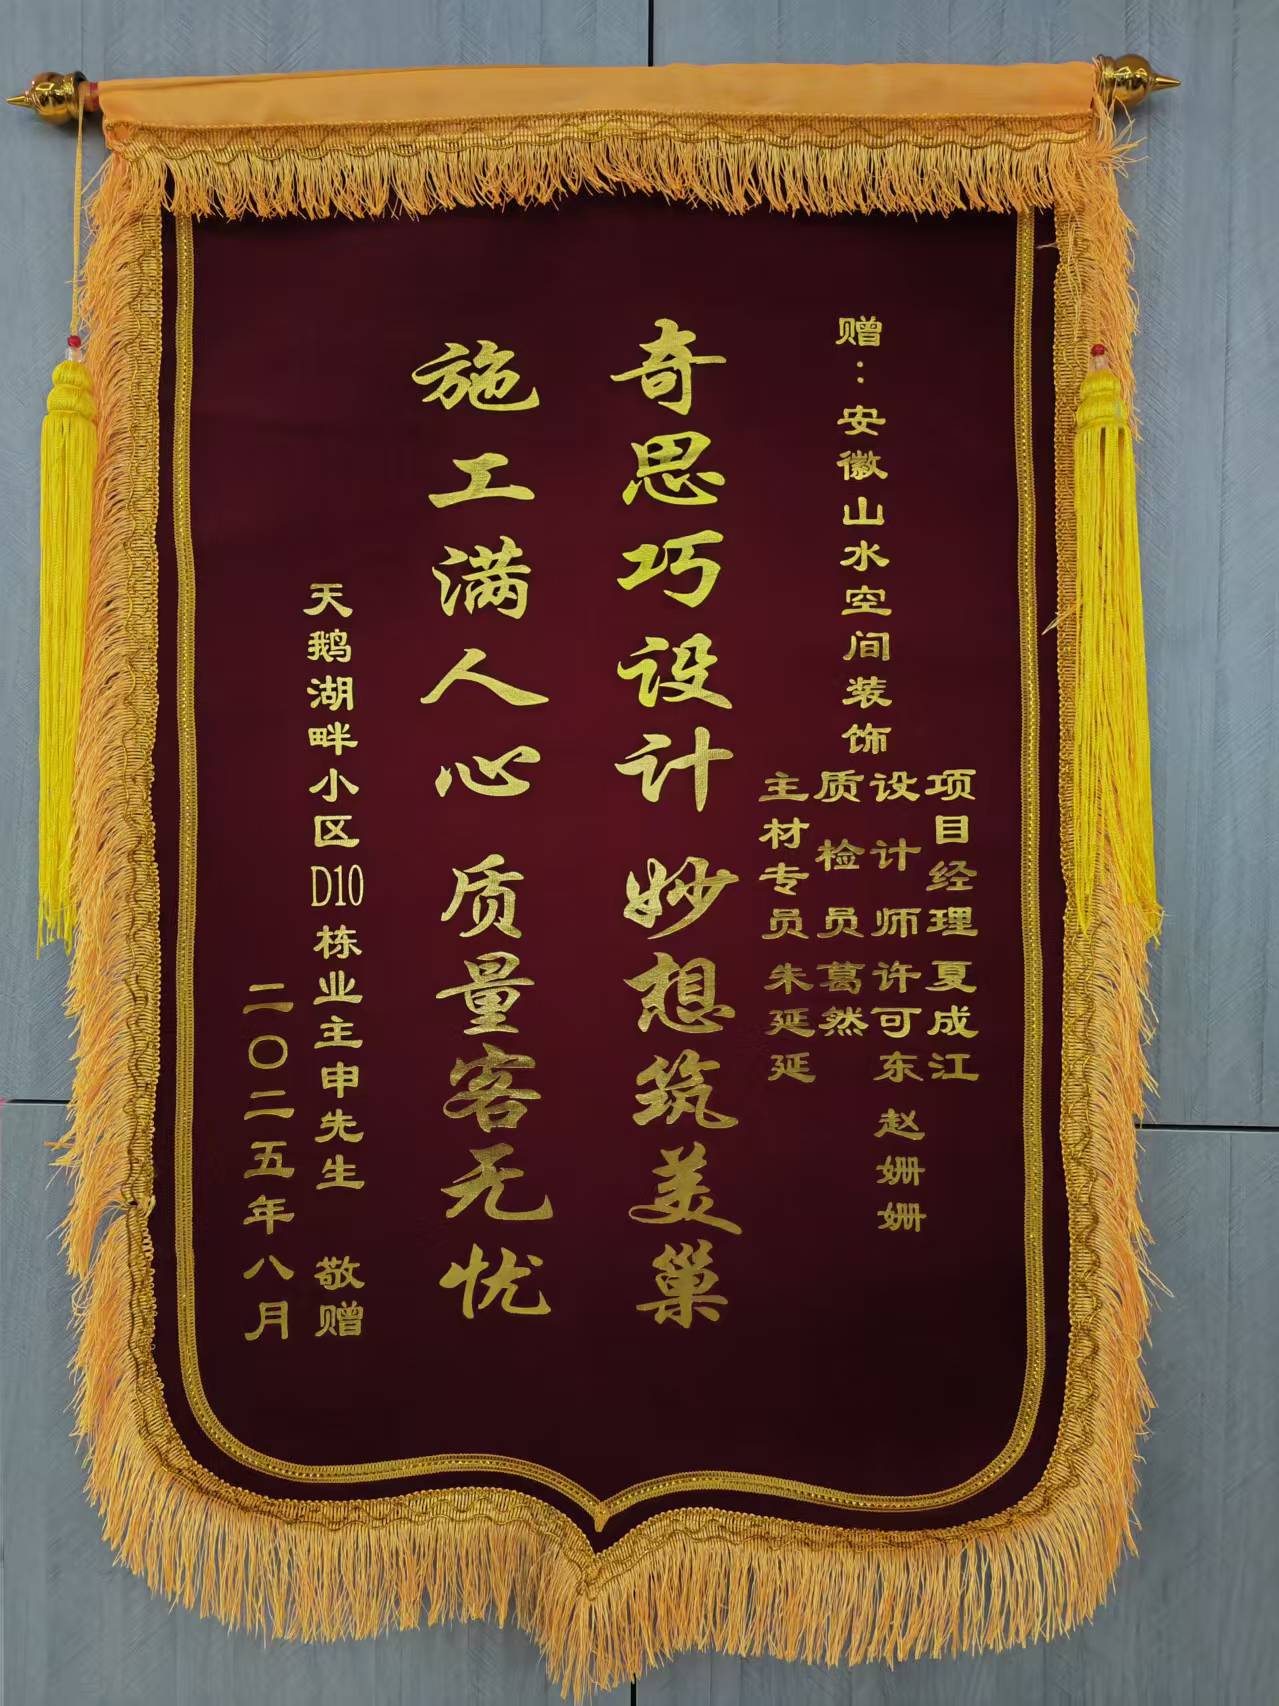 赠：安徽山水空间装饰
项目经理 夏成江
设计师 许可东 赵姗姗
质检员 葛然
主材专员 朱延延
奇思巧设计 妙想筑美巢
施工满人心 质量客无忧
天鹅湖畔小区D10栋业主申先生 敬赠
二〇二五年八月